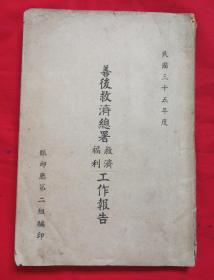 民國三十五年度
善後救濟總署救濟福利工作報告
賑卹廳第二組編印